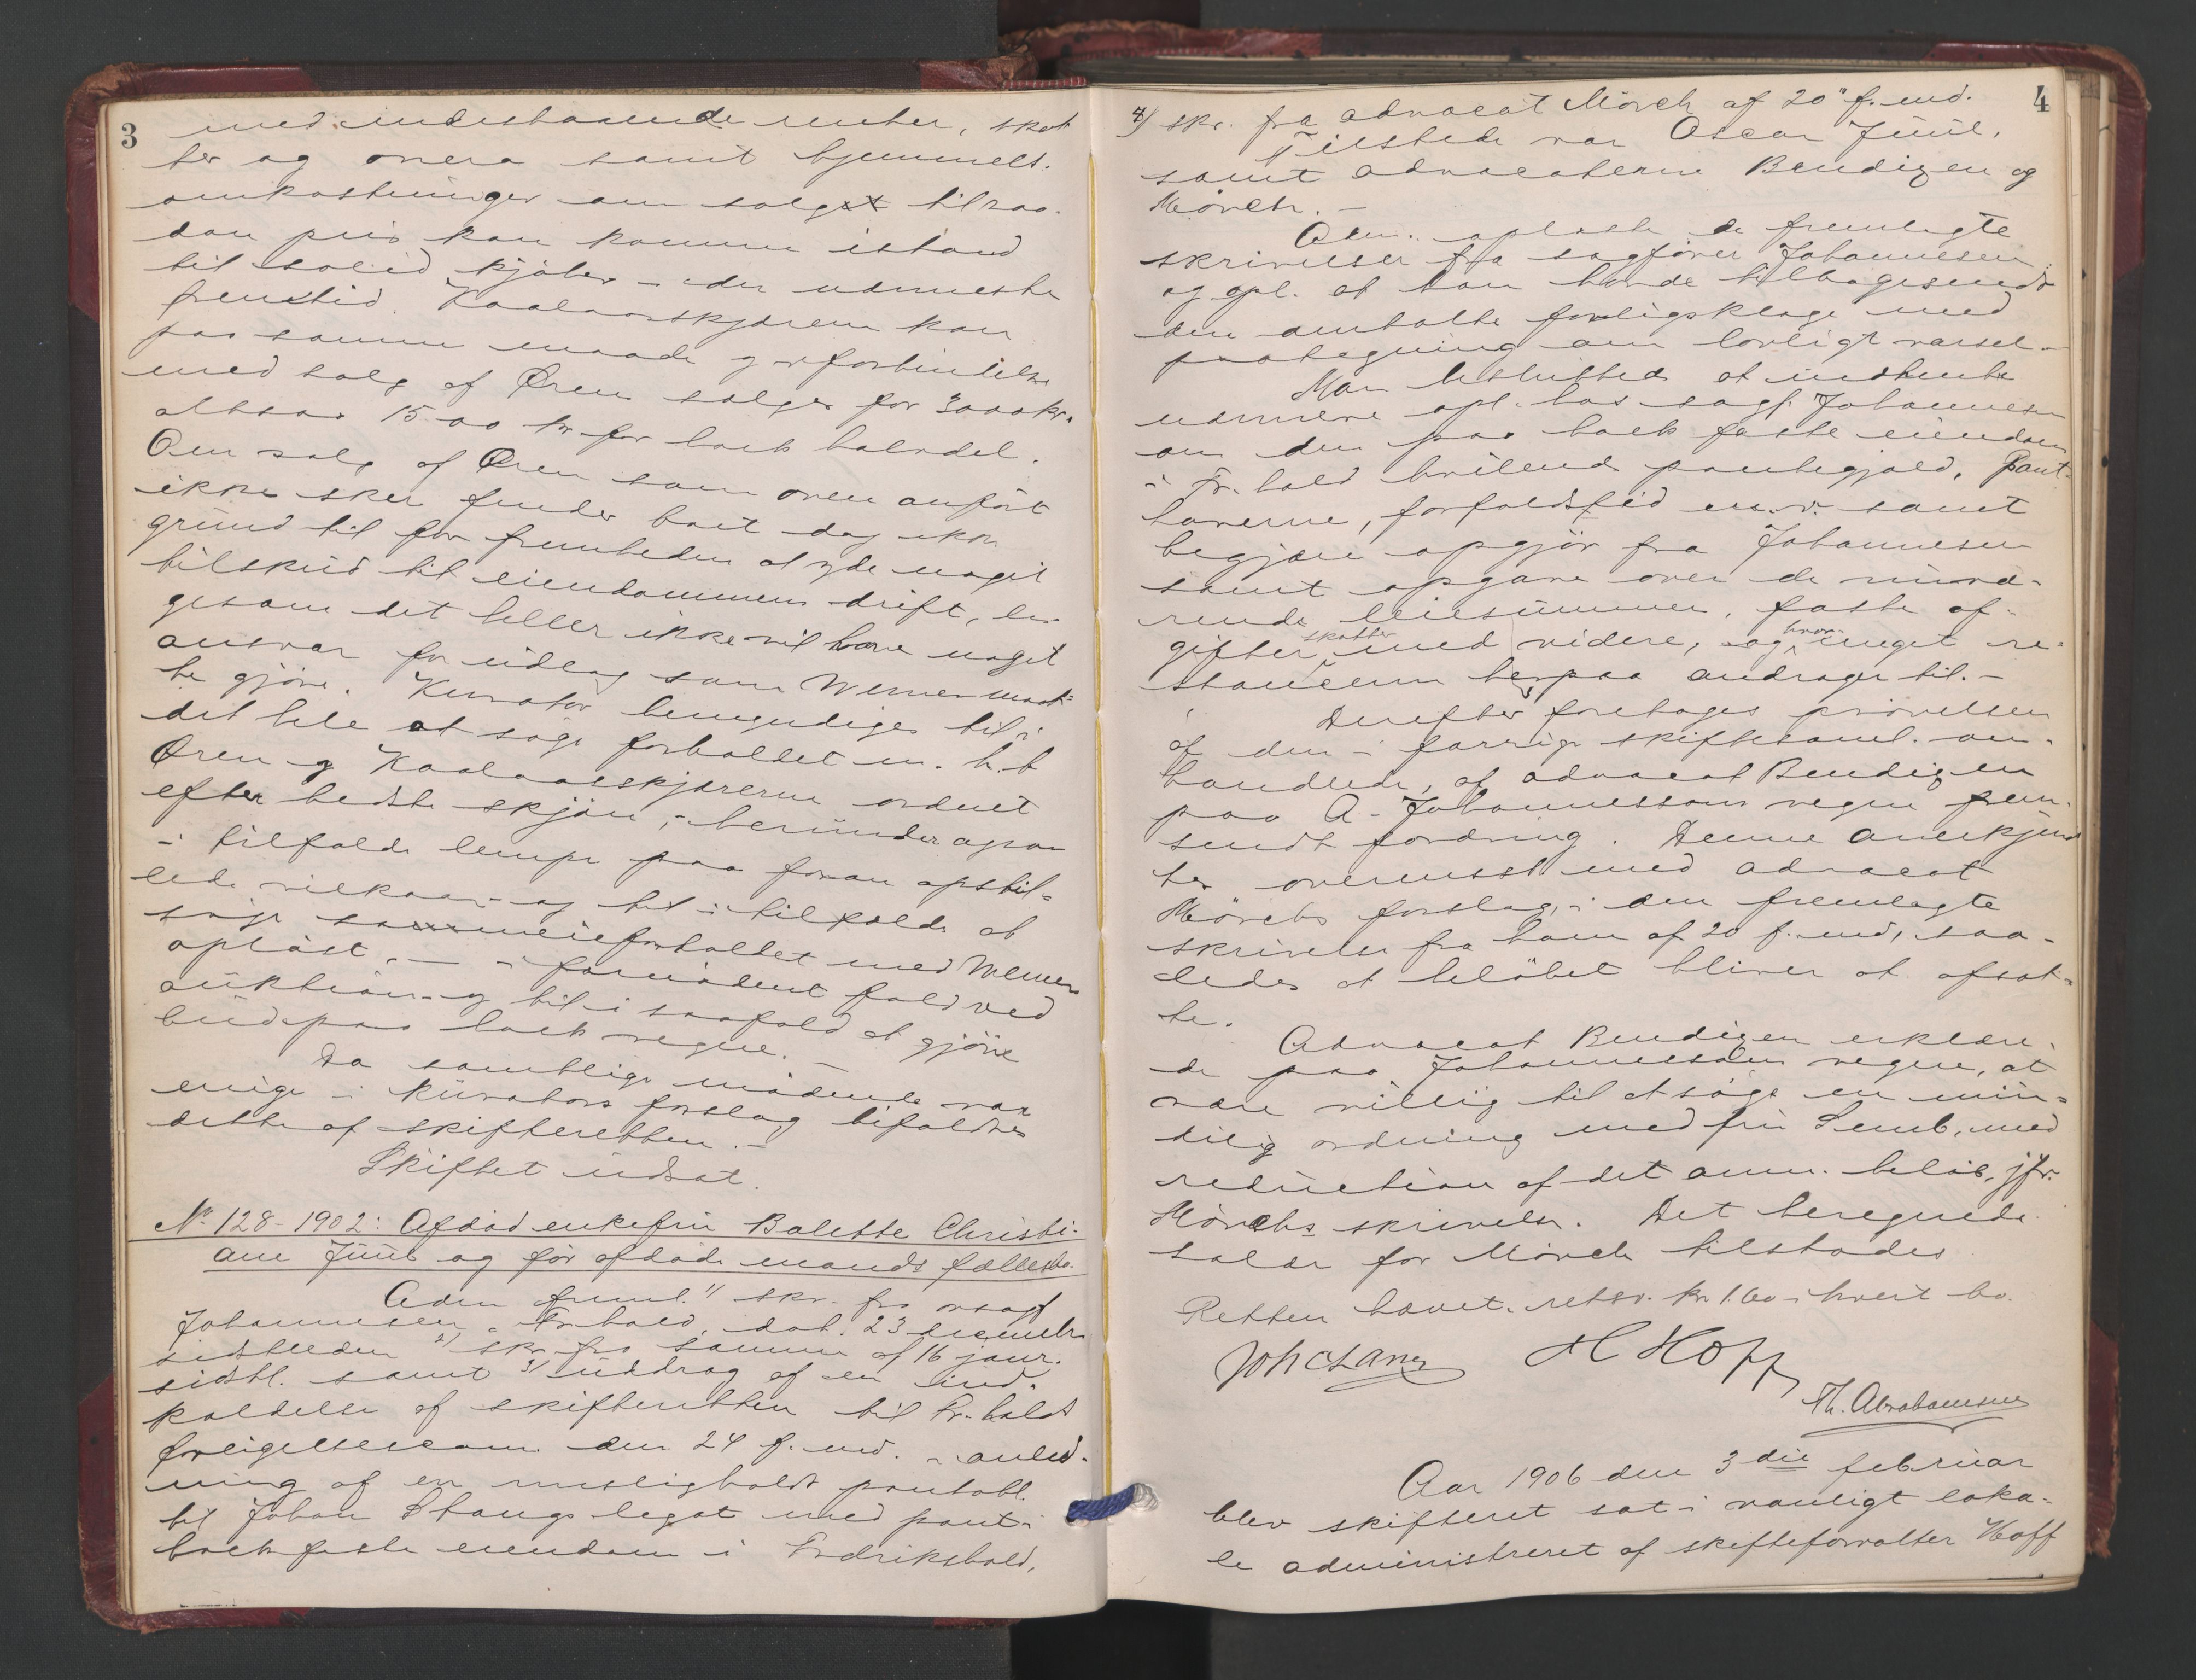 3
med indestaaende renter, skat
ter og onera samt hjemmels.
omkostninger om salget til saa-
dan pris kan komme istand
til solid kjøber i den nærmeste
fremtid. Kaalaasskjærene kan
paa samme maade g iforbindelse
med salg af Øren sælges for 3000 kr.
altsaa 1500 kr for boets halvdel.
Om salg af Øren som oven anført
ikke sker finder boet dog ikke
grund til for fremtiden at yde noget
tilskud til eiendommens drift, li
gesom det heller ikke vil have noget
ansvar for udlæg som Werner maat-
te gjøre. Kurator bemyndiges til i
det hele at søge forholdet m. h. t
Øren og Kaalaasskjærene ordnet
efter bedste skjøn, herunder ogsaa
i tilfælde lempe paa foran opstil-
lede vilkaar og til i tilfælde at
søge sameieforholdet med Werner
opløst, i fornødent fald ved
auktion og til i saafald at gjøre
bud paa boets vegne.
Da samtlige mødende var
enige i kurators forslag bifaldtes
dette af skifteretten.
Skiftet udsat.
No 128-1902: Afdød enkefru Balette Christi-
ane Juul og før afdøde mands fællesbo.
Adm freml. 1) skr. fra orsagf
Johannesen, Fr.hald, dat. 23 december
sidstleden 2) skr. fra samme af 16 januar.
sidstl. samt 3) uddrag af en ind-
kaldelse af skifteretten til Fr.halds
forligelseskom. den 24 f. md. i anled-
ning af en misligholdt pantobl.
til Johan Stangs legat med pant i
boets faste eiendom i Fredrikshald,
4
4) skr. fra advocat Mørch af 20 f. md.
Tilstede var Oscar Juul,
samt advocaterne Bendixen og
Mørch.
Adm. oplæste de fremlagte
skrivelser fra sagfører Johannesen
og opl. at han havde tilbagesendt
den omtalte forligsklage med
paategning om lovligt varsel.
Man besluttede at indhente
nærmere opl. hos sagf. Johannesen
om den paa boets faste eiendom
i Fr.hald hvilende pantegjæld, pant-
haverne, forfaldstid m. v. samt
begjære opgjør fra Johannesen
samt opgave over de nuvæ-
rende leiesummer, faste af-
gifter, skatter med videre, og hvor meget re-
stancerne herpaa andrager til.
Derefter foretages prøvelsen
af den i forrige skiftesaml. om-
handlede, af advocat Bendixen
paa A. Johannessens vegne frem-
sendt fordring. Denne anerkjend
tes overensst med advocat
Mørchs forslag i den fremlagte
skrivelse fra ham af 20 f. md, saa-
ledes at beløbet bliver at afsæt-
te.
Advocat Bendixen erklære-
de paa Johannessens vegne, at
være villig til at søge en min-
delig ordning med fru Semb, med
reduction af det anm. beløb, jfr.
Mørchs skrivelse. Det beregnede
salær for Mørch tilstodes
Retten hævet. retsv. kr 1.60 i hvert bo.
H Hoff
Th. Abrahamsen
Aar 1906 den 3die februar
blev skifteret sat i vanligt loka-
le administreret af skifteforvalter Hoff